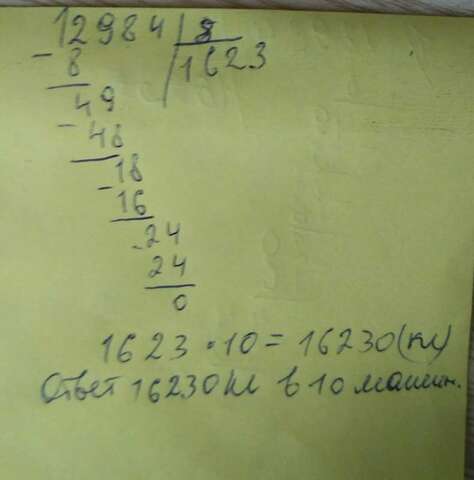 12984 | 8
- 8 | 1623
49
- 48
18
- 16
- 24
24
0
1623 · 10 = 16230 (кг)
Ответ 16230 кг в 10 машин.